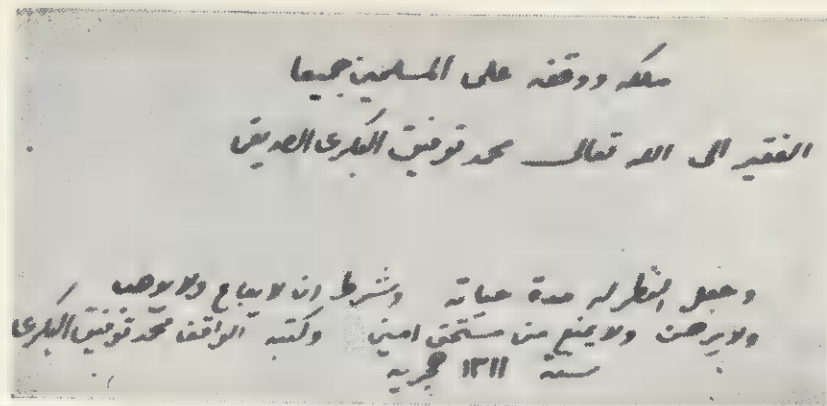 ملكه ووقفه على المسلمين جميعا
الفقير الى الله تعالى محمد توفيق البكرى الصديقى
وجعل النظر له مدة حياته وشرط ان لا يباع ولا يوهب
ولا يرهن ولا يمنع من مستحق امين وكتبه الواقف محمد توفيق البكرى
سنة ١٣١١ هجريه